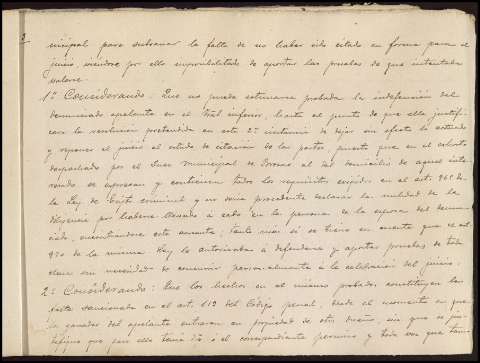 3
nicipal para subsanar la falta de no haber sido citado en forma para el
juicio viéndose por ello imposibilitado de aportar las pruebas de que intentaba
valerse.
1º Considerando: Que no puede estimarse probada la indefensión del
denunciado apelante en el Tribal inferior, hasta el punto de que ella justifi-
case la resolución pretendida en esta 2ª instancia de dejar sin efecto lo actuado
y reponer el juicio al estado de citación de las partes, puesto que en el exhorto
despachado por el Juez Municipal de al del domicilio de aquel inte-
resado se expresan y contienen todos los requisitos exigidos en el art. 965 de
la Ley de Enjto criminal y no seria procedente declarar la nulidad de la
diligencia por haberse llevado á cabo en la persona de la esposa del denun-
ciado, encontrándose este ausente; tanto mas si se tiene en cuenta que el art.
970 de la misma Ley le autorizaba á defenderse y aportar pruebas de toda
clase sin necesidad de concurrir personalmente á la celebración del juicio.
2º Considerando: Que los hechos en el mismo probados, constituyen la
falta sancionada en el art. 612 del Código penal, desde el momento en que
los ganados del apelante entraron en propiedad de otro dueño, sin que se jus-
tifique que para ello tenia dro o el correspondiente permiso y toda vez que tam-